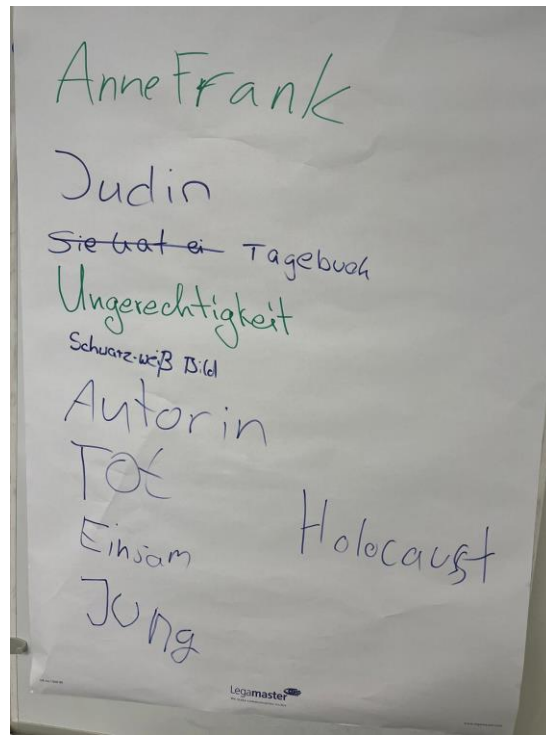 Anne Frank
Judin
Sie hat ei Tagebuch
Ungerechtigkeit
Schwarz-weiß Bild
Autorin
Tot
Holocaust
Einsam
Jung
Legamaster